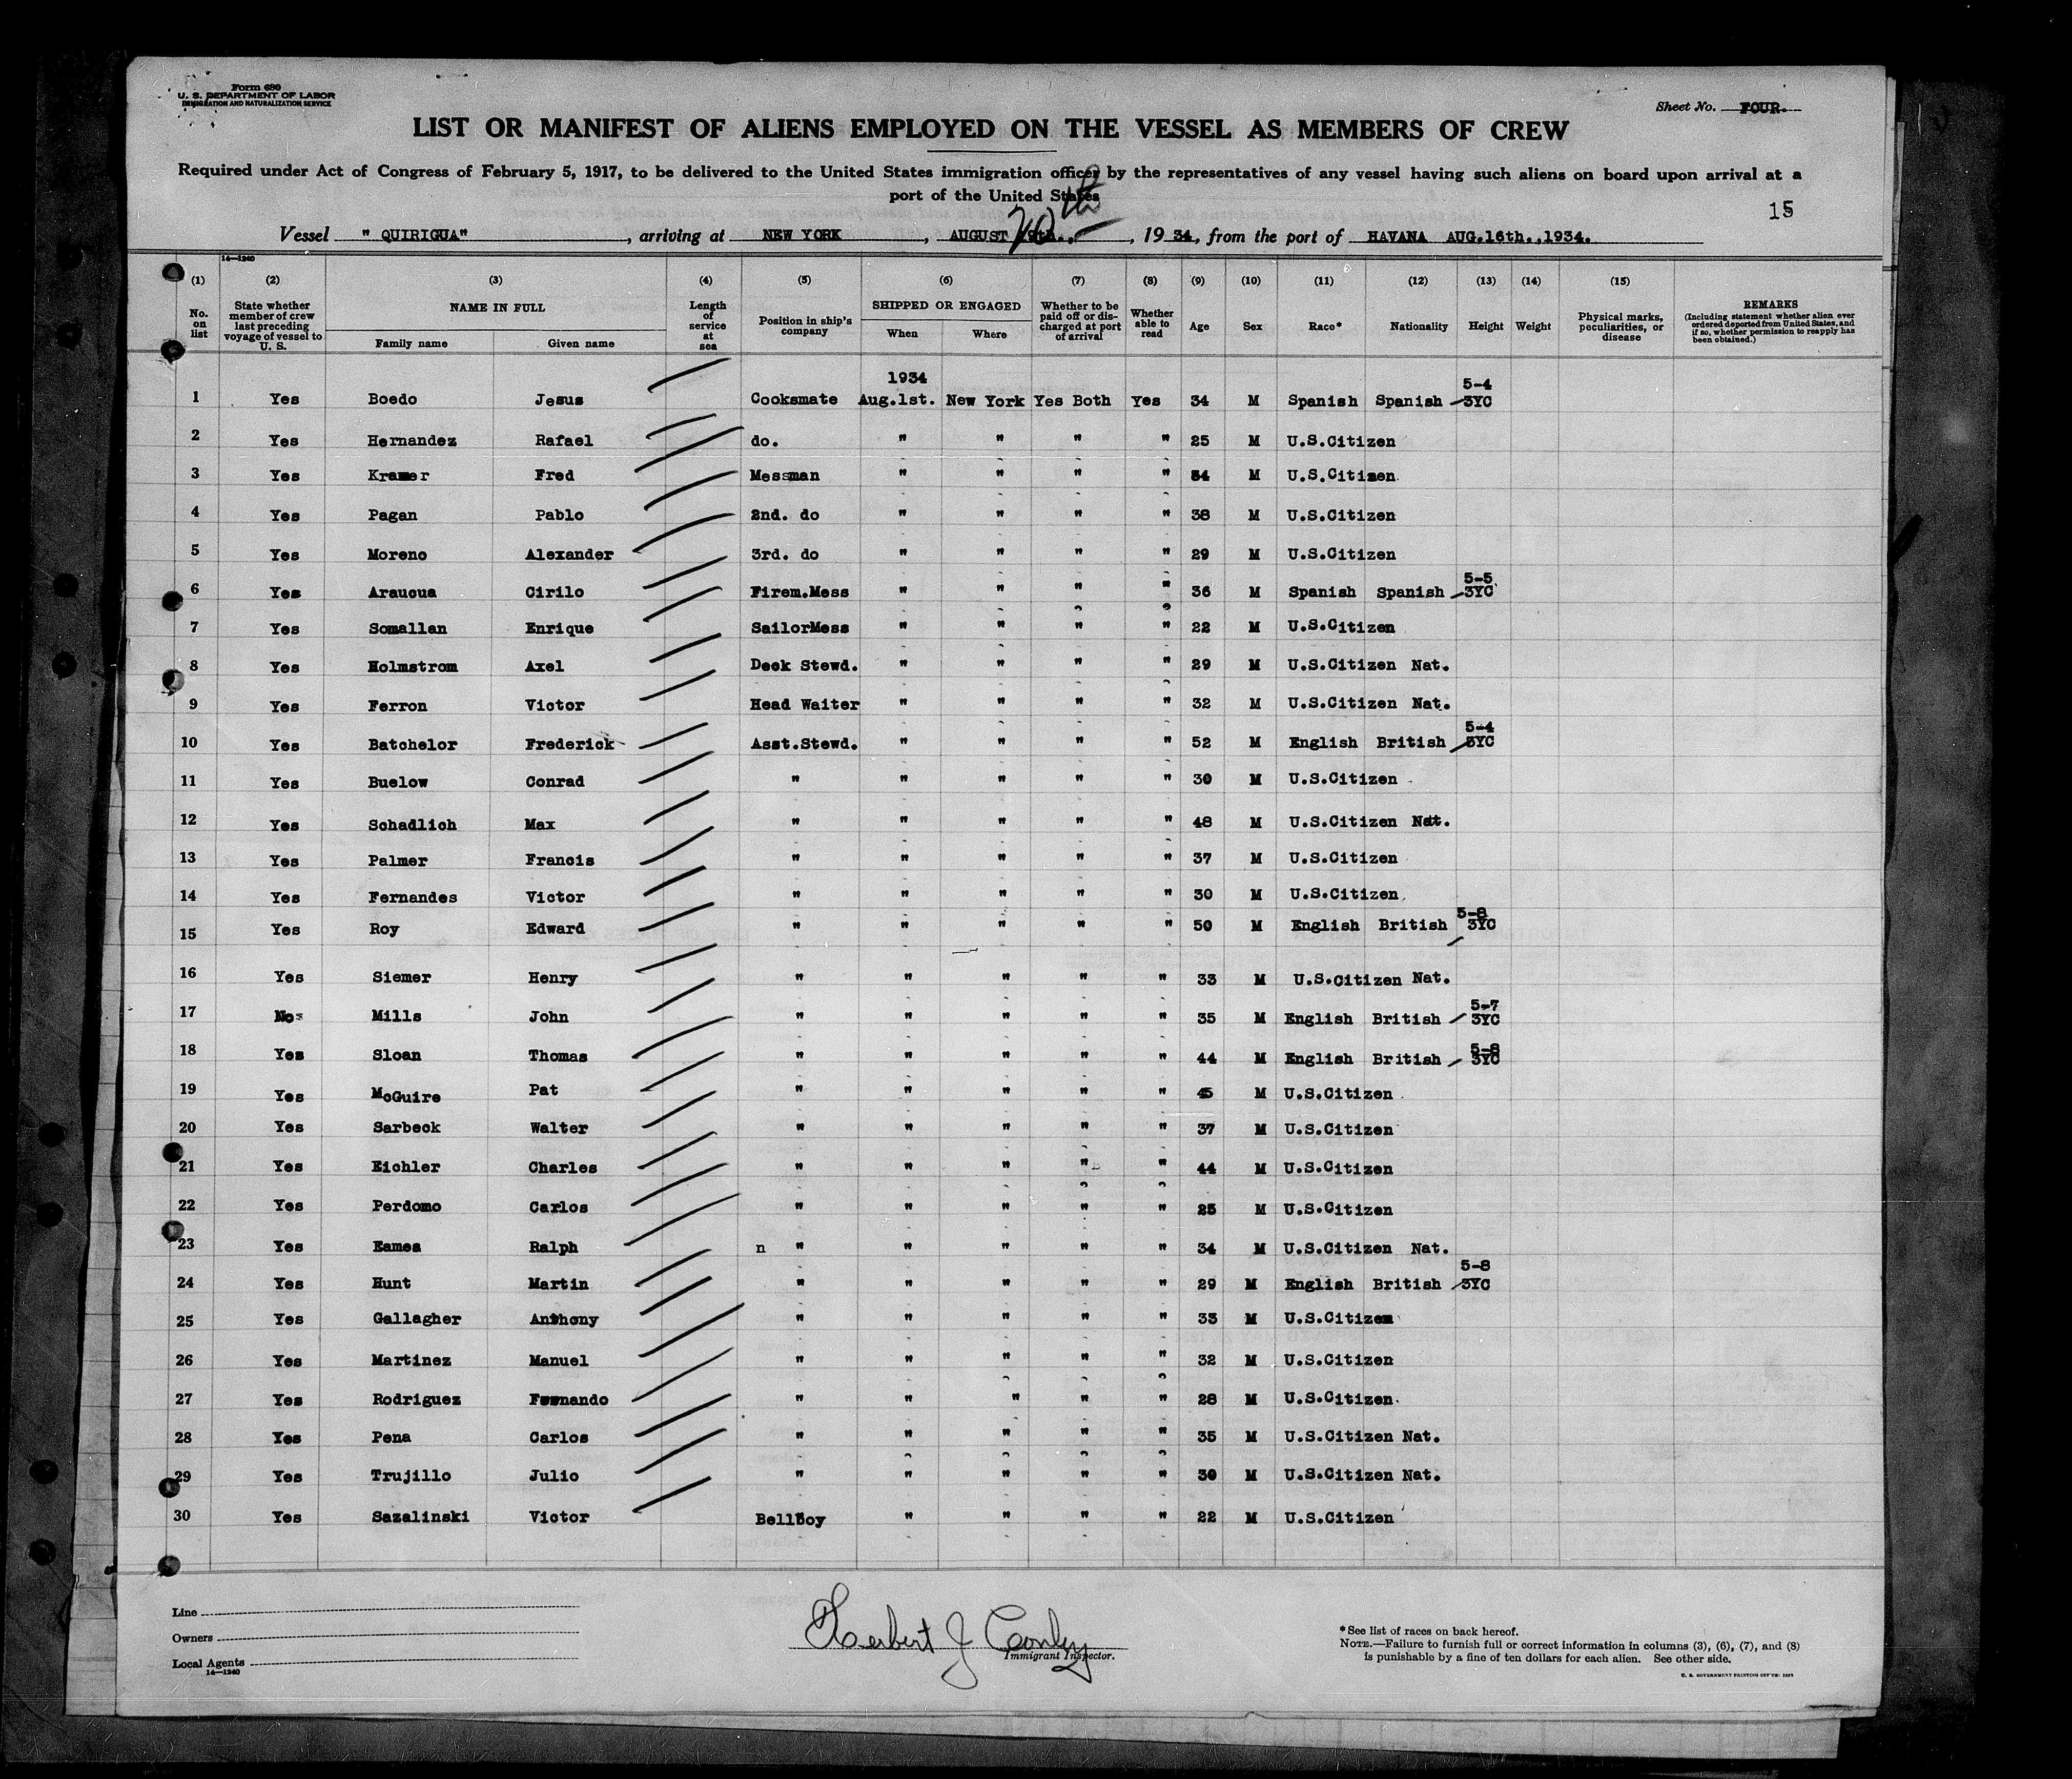 Form 680
U. S. DEPARTMENT OF LABOR
IMMIGRATION AND NATURALIZATION SERVICE
Sheet No. FOUR.
LIST OR MANIFEST OF ALIENS EMPLOYED ON THE VESSEL AS MEMBERS OF CREW
Required under Act of Congress of February 5, 1917, to be delivered to the United States immigration officer by the representatives of any vessel having such aliens on board upon arrival at a
port of the United States
15
20th
Vessel " QUIRIGUA" , arriving at NEW YORK , AUGUST 19th., , 19 34, from the port of HAVANA AUG.16th.,1934.
14—1240
(1) (2) (3) (4) (5) (6) (7) (8) (9) (10) (11) (12) (13) (14) (15)
No. on list State whether member of crew last preceding voyage of vessel to U. S. NAME IN FULL Family name Given name Length of service at sea Position in ship's company SHIPPED OR ENGAGED When Where Whether to be paid off or discharged at port of arrival Whether able to read Age Sex Race* Nationality Height Weight Physical marks, peculiarities, or disease REMARKS (Including statement whether alien ever ordered deported from United States, and if so, whether permission to reapply has been obtained.)
1934 5-4
1 Yes Boedo Jesus Cooksmate Aug.1st. New York Yes Both Yes 34 M Spanish Spanish 3YC
2 Yes Hernandez Rafael do. " " " " 25 M U.S.Citizen
3 Yes Kramer Fred Messman " " " " 54 M U.S.Citizen
4 Yes Pagan Pablo 2nd. do " " " " 38 M U.S.Citizen
5 Yes Moreno Alexander 3rd. do " " " " 29 M U.S.Citizen
5-5
6 Yes Araucua Cirilo Firem.Mess " " " " 36 M Spanish Spanish 3YC
7 Yes Somallan Enrique SailorMess " " " " 22 M U.S.Citizen
8 Yes Holmstrom Axel Deck Stewd. " " " " 29 M U.S.Citizen Nat.
9 Yes Ferron Victor Head Waiter " " " " 32 M U.S.Citizen Nat.
5-4
10 Yes Batchelor Frederick Asst.Stewd. " " " " 52 M English British 3YC
11 Yes Buelow Conrad " " " " " 30 M U.S.Citizen
12 Yes Schadlich Max " " " " " 48 M U.S.Citizen Nat.
13 Yes Palmer Francis " " " " " 37 M U.S.Citizen
14 Yes Fernandes Victor " " " " " 30 M U.S.Citizen
5-8
15 Yes Roy Edward " " " " " 50 M English British 3YC
16 Yes Siemer Henry " " " " " 33 M U.S.Citizen Nat.
5-7
17 No Mills John " " " " " 35 M English British 3YC
5-8
18 Yes Sloan Thomas " " " " " 44 M English British 3YC
19 Yes McGuire Pat " " " " " 45 M U.S.Citizen
20 Yes Sarbeck Walter " " " " " 37 M U.S.Citizen
21 Yes Eichler Charles " " " " " 44 M U.S.Citizen
22 Yes Perdomo Carlos " " " " " 25 M U.S.Citizen
23 Yes Eames Ralph n " " " " " 34 M U.S.Citizen Nat.
5-8
24 Yes Hunt Martin " " " " " 29 M English British 3YC
25 Yes Gallagher Anthony " " " " " 33 M U.S.Citizen
26 Yes Martinez Manuel " " " " " 32 M U.S.Citizen
27 Yes Rodriguez Fernando " " " " " 28 M U.S.Citizen
28 Yes Pena Carlos " " " " " 35 M U.S.Citizen Nat.
29 Yes Trujillo Julio " " " " " 30 M U.S.Citizen Nat.
30 Yes Sazalinski Victor BellBoy " " " " 22 M U.S.Citizen
Line
Owners
Local Agents
14—1240
Herbert J Conley
Immigrant Inspector.
*See list of races on back hereof.
NOTE.—Failure to furnish full or correct information in columns (3), (6), (7), and (8)
is punishable by a fine of ten dollars for each alien. See other side.
U. S. GOVERNMENT PRINTING OFFICE: